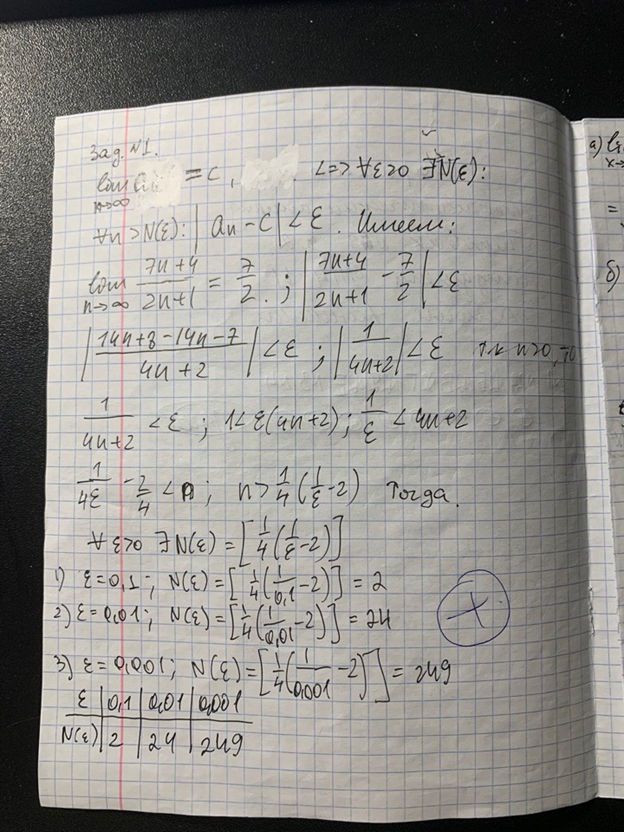 Зад. №1.
lim = c, <=> ∀ε>0 ∃N(ε):
n→∞
∀n>N(ε): |an - c| < ε. Имеем:
lim (7n+4)/(2n+1) = 7/2. ; |(7n+4)/(2n+1) - 7/2| < ε
n→∞
|(14n+8-14n-7)/(4n+2)| < ε ; |1/(4n+2)| < ε т.к n>0, то
1/(4n+2) < ε ; 1<ε(4n+2); 1/ε < 4n+2
1/4ε - 2/4 < n ; n > 1/4 (1/ε - 2) Тогда.
∀ε>0 ∃N(ε) = [1/4 (1/ε - 2)]
1) ε=0,1; N(ε) = [1/4 (1/0,1 - 2)] = 2
2) ε=0,01; N(ε) = [1/4 (1/0,01 - 2)] = 24
+
3) ε=0,001; N(ε) = [1/4 (1/0,001 - 2)] = 249
ε | 0,1 | 0,01 | 0,001
N(ε) | 2 | 24 | 249
а)
x→
=
б)